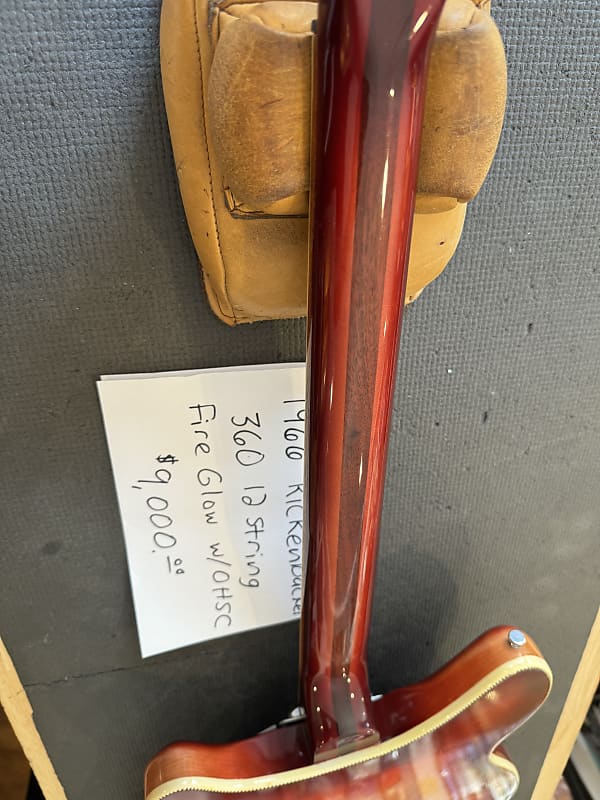 1966 Rickenbacker
360 12 string
Fire Glow w/OHSC
$9,000.00